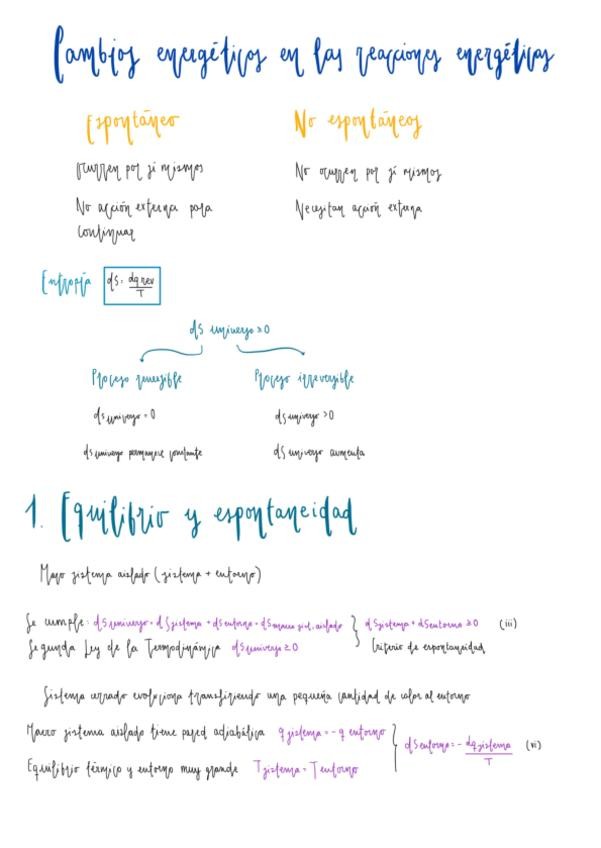 Cambios energéticos en las reacciones energéticas
Espontáneo
No espontáneos
Ocurren por sí mismos
No ocurren por sí mismos
No acción externa para
continuar
Necesitan acción externa
Entropía dS = dq rev / T
dS universo ≥ 0
Proceso reversible
Proceso irreversible
dS universo = 0
dS universo > 0
dS universo permanece constante
dS universo aumenta
1. Equilibrio y espontaneidad
Macro sistema aislado (sistema + entorno)
Se cumple: dS universo = dS sistema + dS entorno = dS macro sist. aislado
Segunda Ley de la Termodinámica dS universo ≥ 0
dS sistema + dS entorno ≥ 0 (iii)
Criterio de espontaneidad
Sistema cerrado evoluciona transfiriendo una pequeña cantidad de calor al entorno
Macro sistema aislado tiene pared adiabática q sistema = - q entorno
Equilibrio térmico y entorno muy grande T sistema = T entorno
dS entorno = - dq sistema / T (vi)